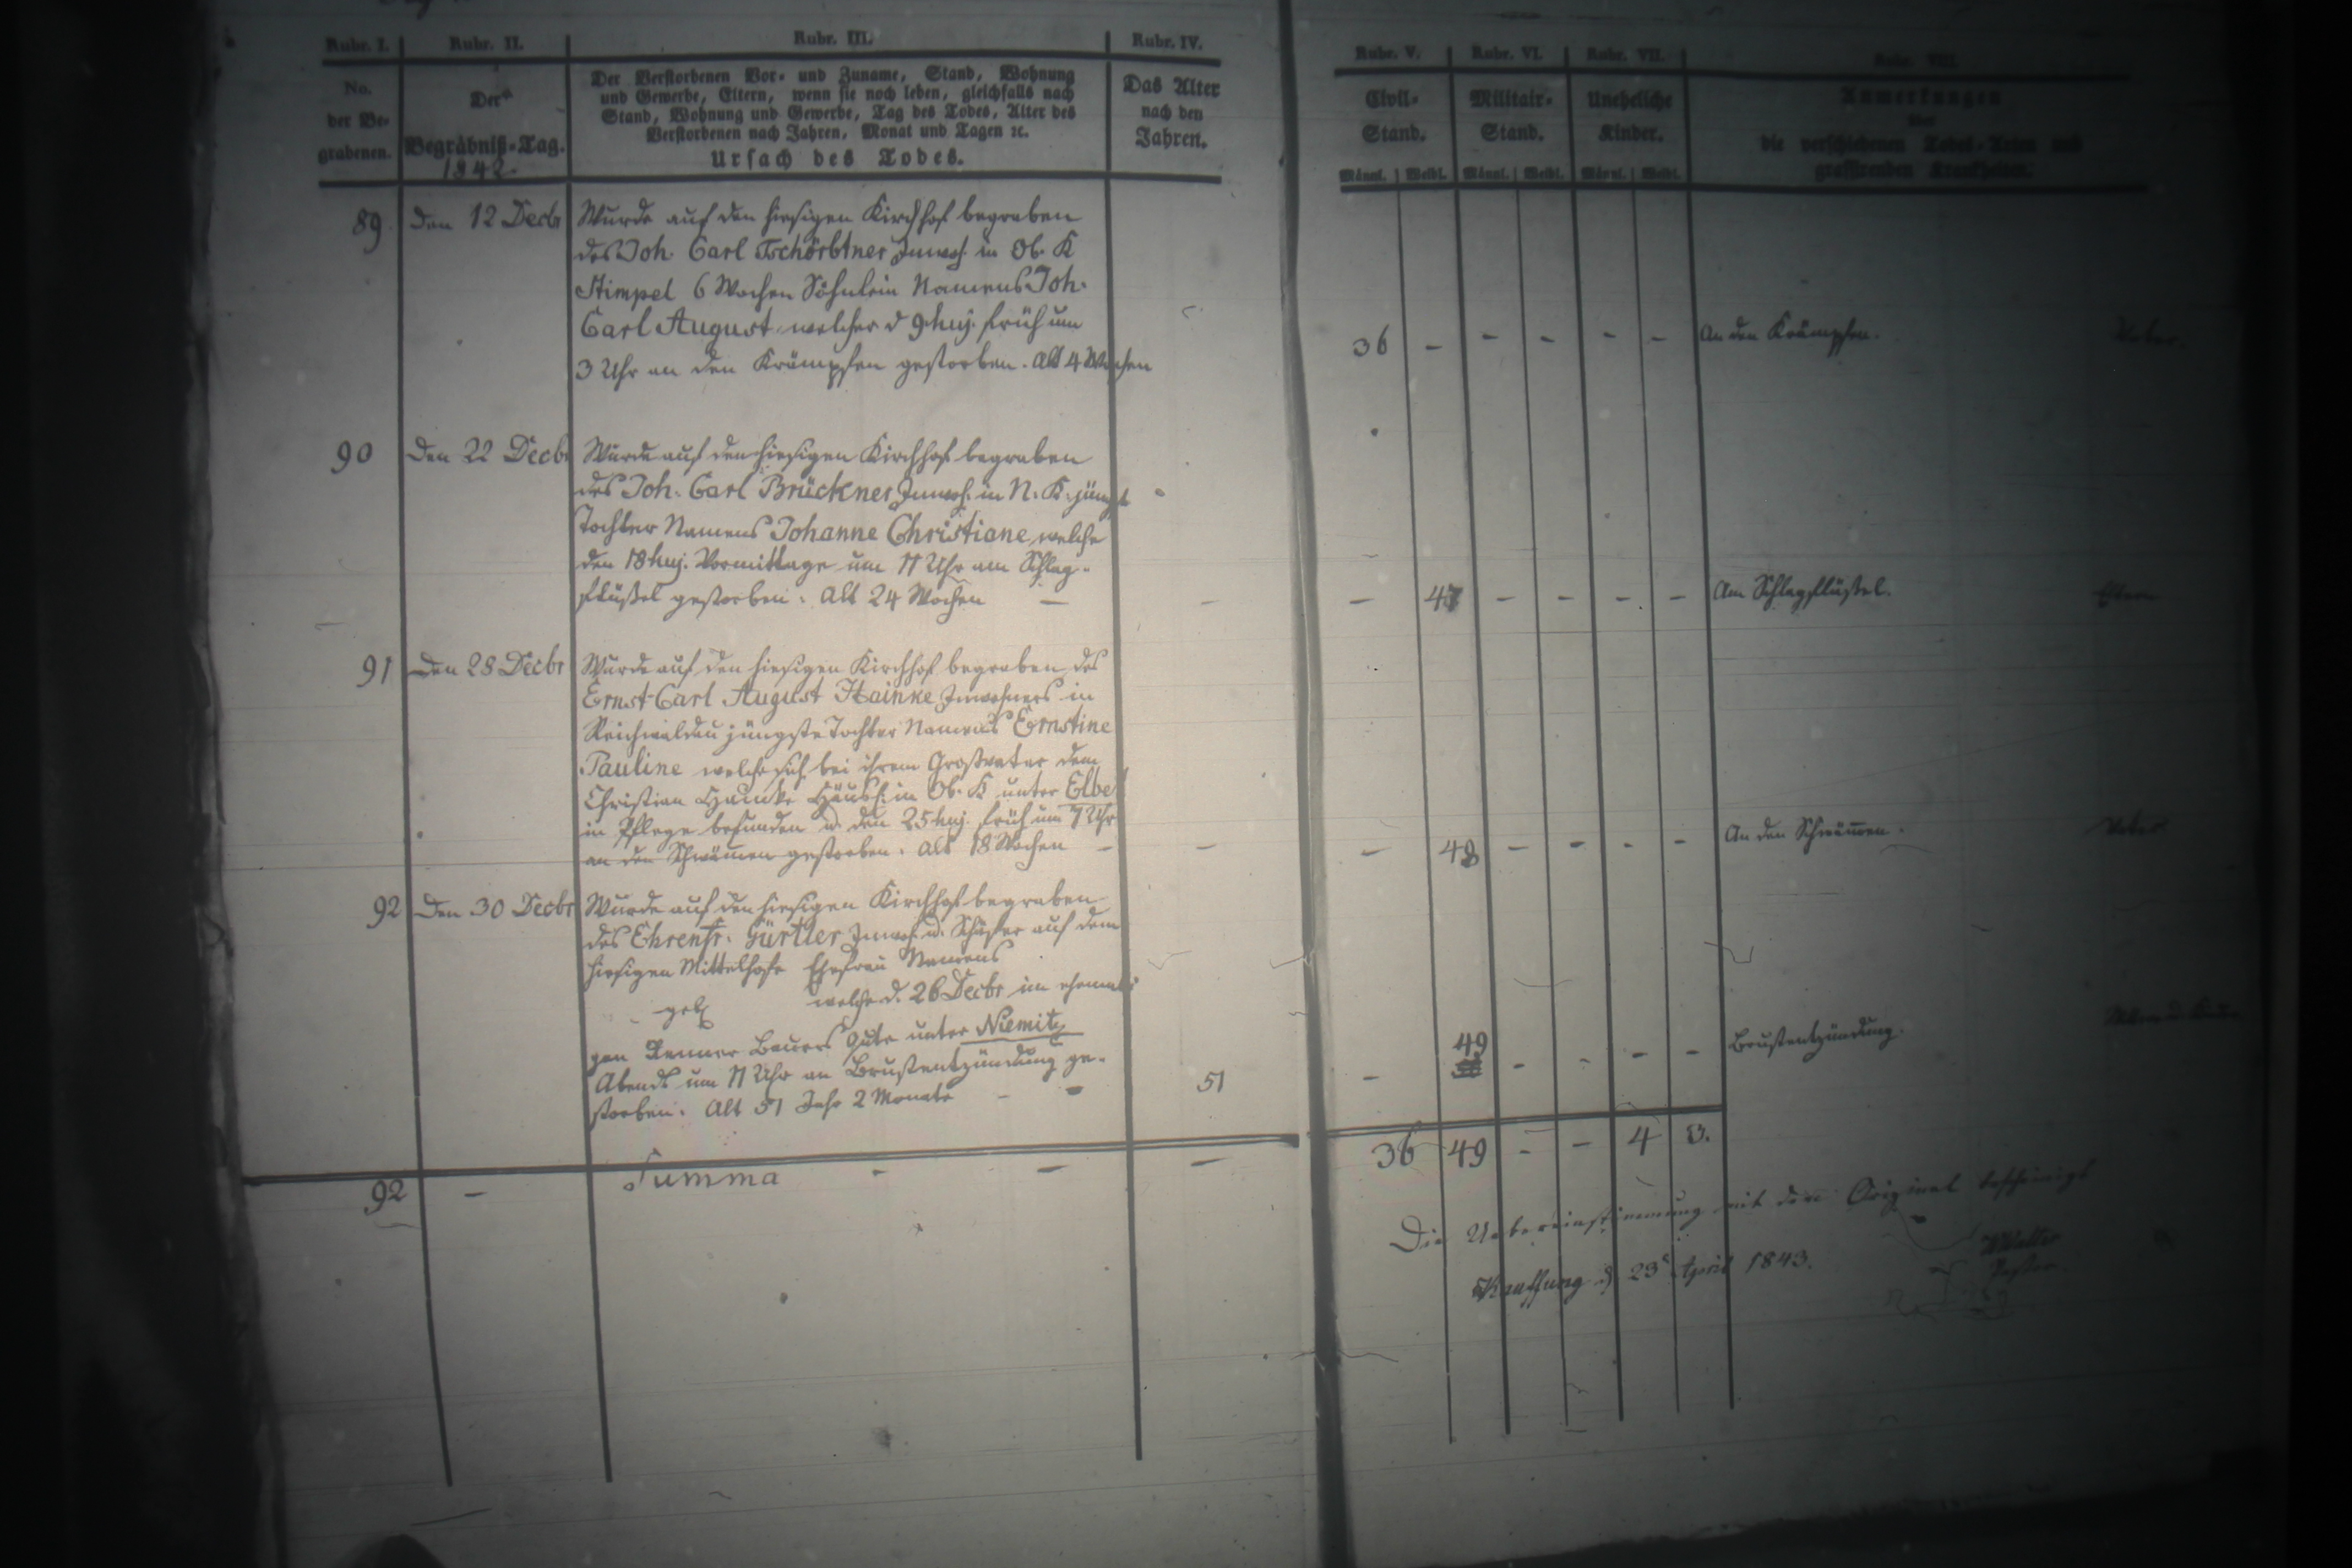 Rubr. I. Rubr. II. Rubr. III. Rubr. IV. Rubr. V. Rubr. VI. Rubr. VII. Rubr. VIII.
No. der Be-grabenen.
Der Begräbniß-Tag.
1842.
Der Verstorbenen Vor- und Zuname, Stand, Wohnung
und Gewerbe, Eltern, wenn sie noch leben, gleichfalls nach
Stand, Wohnung und Gewerbe, Tag des Todes, Alter des
Verstorbenen nach Jahren, Monat und Tagen ꝛc.
Ursach des Todes.
Das Alter
nach den
Jahren.
Civil-Stand.
Militair-Stand.
Uneheliche Kinder.
Anmerkungen
über
die verschiedenen Todes-Arten und
grassirenden Krankheiten.
Männl. Weibl. Männl. Weibl. Männl. Weibl.
89 Den 12 Decbr Wurde auf den hiesigen Kirchhof begraben
des Joh. Carl Tschörbtner Inwoh. in Ob. K
Stimpel 6 Wochen Söhnlein Namens Joh.
Carl August welcher d 9 huj. früh um
3 Uhr an den Krämpfen gestorben. Alt 4 Wochen
36 - - - - - An den Krämpfen.
90 Den 22 Decbr Wurde auf den hiesigen Kirchhof begraben
des Joh. Carl Brückner Inwoh. in N. K. jüngst
Tochter Namens Johanne Christiane welche
den 18 huj. Vormittage um 11 Uhr am Schlag-
flüßel gestorben. Alt 24 Wochen — —
— 47 - - - - Am Schlagflüßel. Eltern
91 Den 28 Decbr Wurde auf den hiesigen Kirchhof begraben des
Ernst Carl August Hainke Inwohners in
Reichwaldau jüngste Tochter Namens Ernstine
Pauline welche sich bei ihrem Großvater dem
Christian Hainke Häusl. in Ob. K unter Elbel
in Pflege befunden u. den 25 huj. früh um 7 Uhr
an den Schwämen gestorben. Alt 18 Wochen — —
— 48 - - - - An den Schwämen. Vater
92 Den 30 Decbr Wurde auf den hiesigen Kirchhof begraben
des Ehrenfr. Gürtler Inwoh. u. Schäfer auf dem
hiesigen Mittelhofe Ehefrau Namens
geb welche d. 26 Decbr im ehemali
gen Renner Bauers Gute unter Niemitz
Abends um 11 Uhr an Brustentzündung ge-
storben. Alt 51 Jahr 2 Monate - - 51
- 49 - - - - Brustentzündung.
92 - Summa - - - 36 49 - - 4 3.
Die Uebereinstimmung mit dem Original bescheinigt
Kauffung d 23 April 1843.